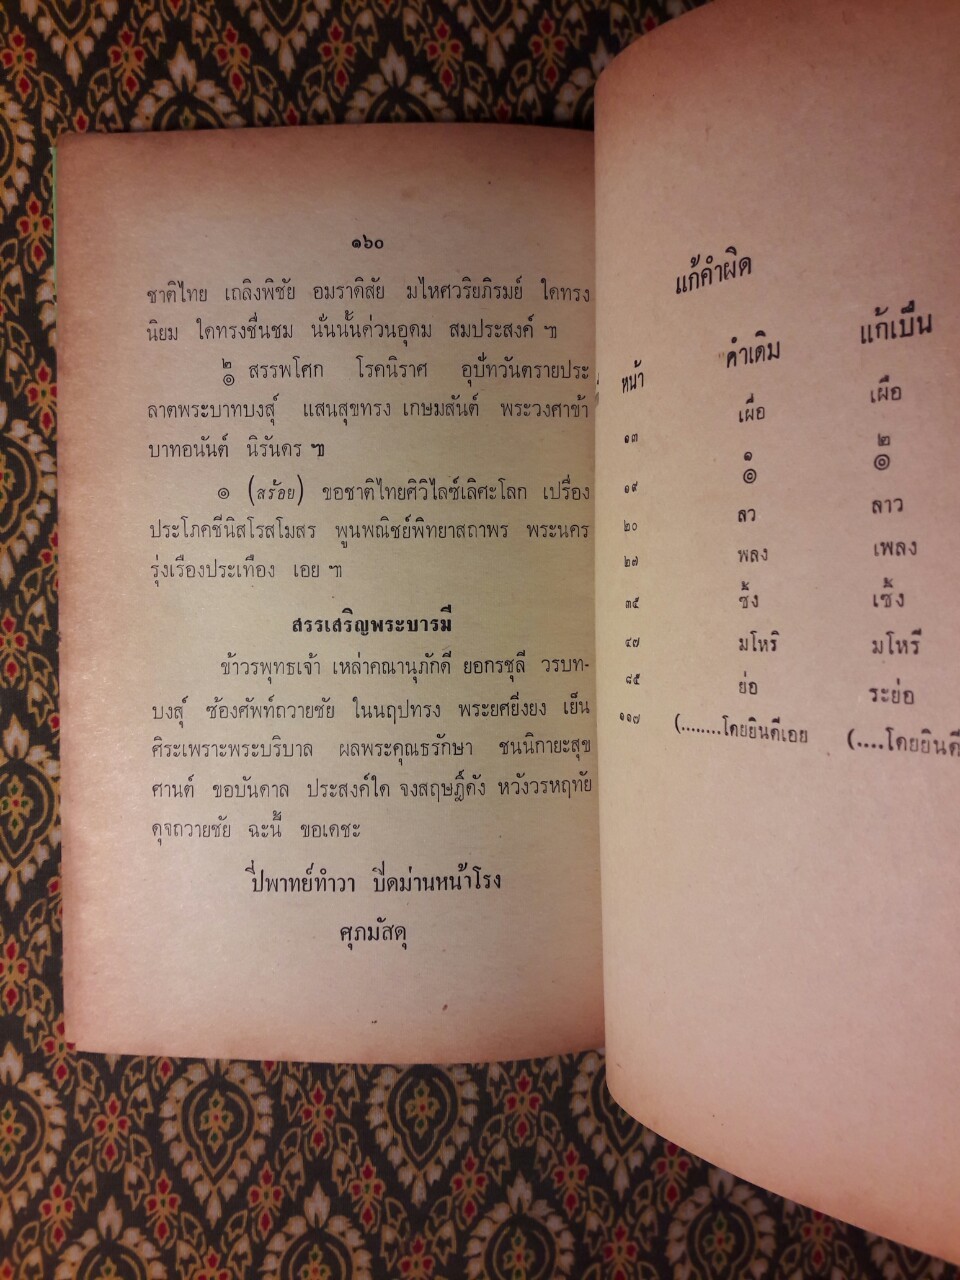 ๑๖๐
ชาติไทย เถลิงพิชัย อมราดิสัย มไหศวริยภิรมย์ ใดทรง
นิยม ใดทรงชื่นชม นั่นนั้นด่วนอุดม สมประสงค์ ฯ
๒
๑ สรรพโศก โรคนิราศ อุบัทวันตรายประ
ลาตพระบาทบงสุ์ แสนสุขทรง เกษมสันต์ พระวงศาข้า
บาทอนันต์ นิรันดร ฯ
๑ (สร้อย) ขอชาติไทยศิวิไลซ์เลิศะโลก เปรื่อง
ประโภคชีนิสโรสโมสร พูนพณิชย์พิทยาสถาพร พระนคร
รุ่งเรืองประเทือง เอย ฯ
สรรเสริญพระบารมี
ข้าวรพุทธเจ้า เหล่าคณานุภักดี ยอกรชุลี วรบท-
บงสุ์ ซ้องศัพท์ถวายชัย ในนฤปทรง พระยศยิ่งยง เย็น
ศิระเพราะพระบริบาล ผลพระคุณธรักษา ชนนิกายะสุข
ศานต์ ขอบันดาล ประสงค์ใด จงสฤษฎิ์ดัง หวังวรหฤทัย
ดุจถวายชัย ฉะนี้ ขอเดชะ
ปี่พาทย์ทำวา ปิดม่านหน้าโรง
ศุภมัสดุ
แก้คำผิด
หน้า คำเดิม แก้เป็น
๑๓ เผื่อ เผือ
๑๙ ๑ ๑ ๒ ๑
๒๐ ลว ลาว
๒๗ พลง เพลง
๓๕ ซ้ง เซ้ง
๔๗ มโหริ มโหรี
๘๕ ย่อ ระย่อ
๑๑๗ (........โดยยินดีเอย (....โดยยินดี